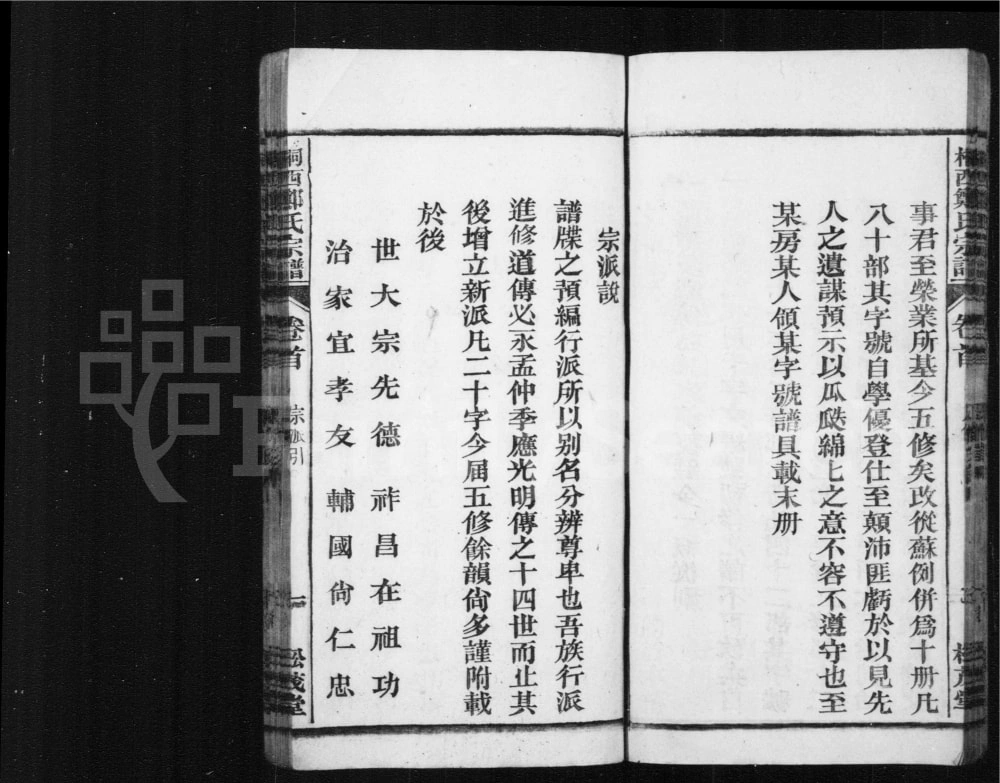 事君至榮業所基今五修矣改從蘇例併為十册凡
八十部其字號自學優登仕至顛沛匪虧於以見先
人之遺謀預示以瓜瓞綿匕之意不容不遵守也至
某房某人領某字號譜具載末册
宗派說
譜牒之預編行派所以别名分辨尊卑也吾族行派
進修道傳必永孟仲季應光明傳之十四世而止其
後增立新派凡二十字今屆五修餘韻尙多謹附載
於後
世大宗先德 祚昌在祖功
治家宜孝友 輔國尙仁忠
桐西鄭氏宗譜
卷首
宗派引
一
松茂堂